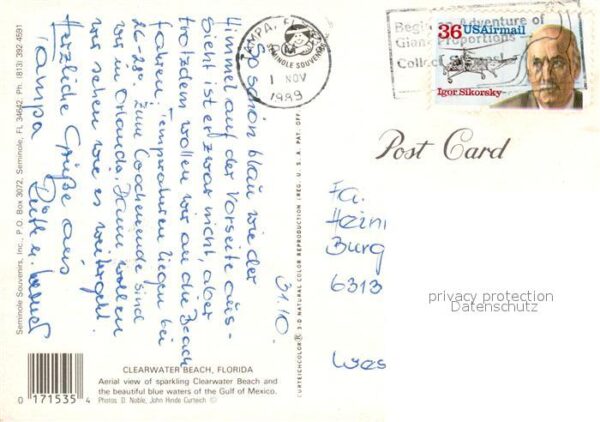 TAMPA, FL
PM
SEMINOLE SOUVENIRS
1 NOV
1989
Begin an Adventure of
Giant Proportions
Collect Stamps!
36 USAirmail
Igor Sikorsky
Post Card
31.10.
So schön blau wie der
Himmel auf der Vorseite aus-
sieht ist er zwar nicht, aber
trotzdem wollen wir an die Beach
fahren. Temperaturen liegen bei
26-28°. Zum Wochenende sind
wir in Orlando. Dann wollen
wir sehen wie es weitergeht.
Herzliche Grüße aus
Tampa
Fa.
Heini
Burg
6313
privacy protection
Datenschutz
CLEARWATER BEACH, FLORIDA
Aerial view of sparkling Clearwater Beach and
the beautiful blue waters of the Gulf of Mexico.
Photos: D. Noble, John Hinde Curteich ©
0 171535 4
Seminole Souvenirs, Inc., P.O. Box 3072, Seminole, FL 34642, Ph. (813) 392-4691
CURTEICHCOLOR® 3-D NATURAL COLOR REPRODUCTION (REG. U.S.A. PAT. OFF.